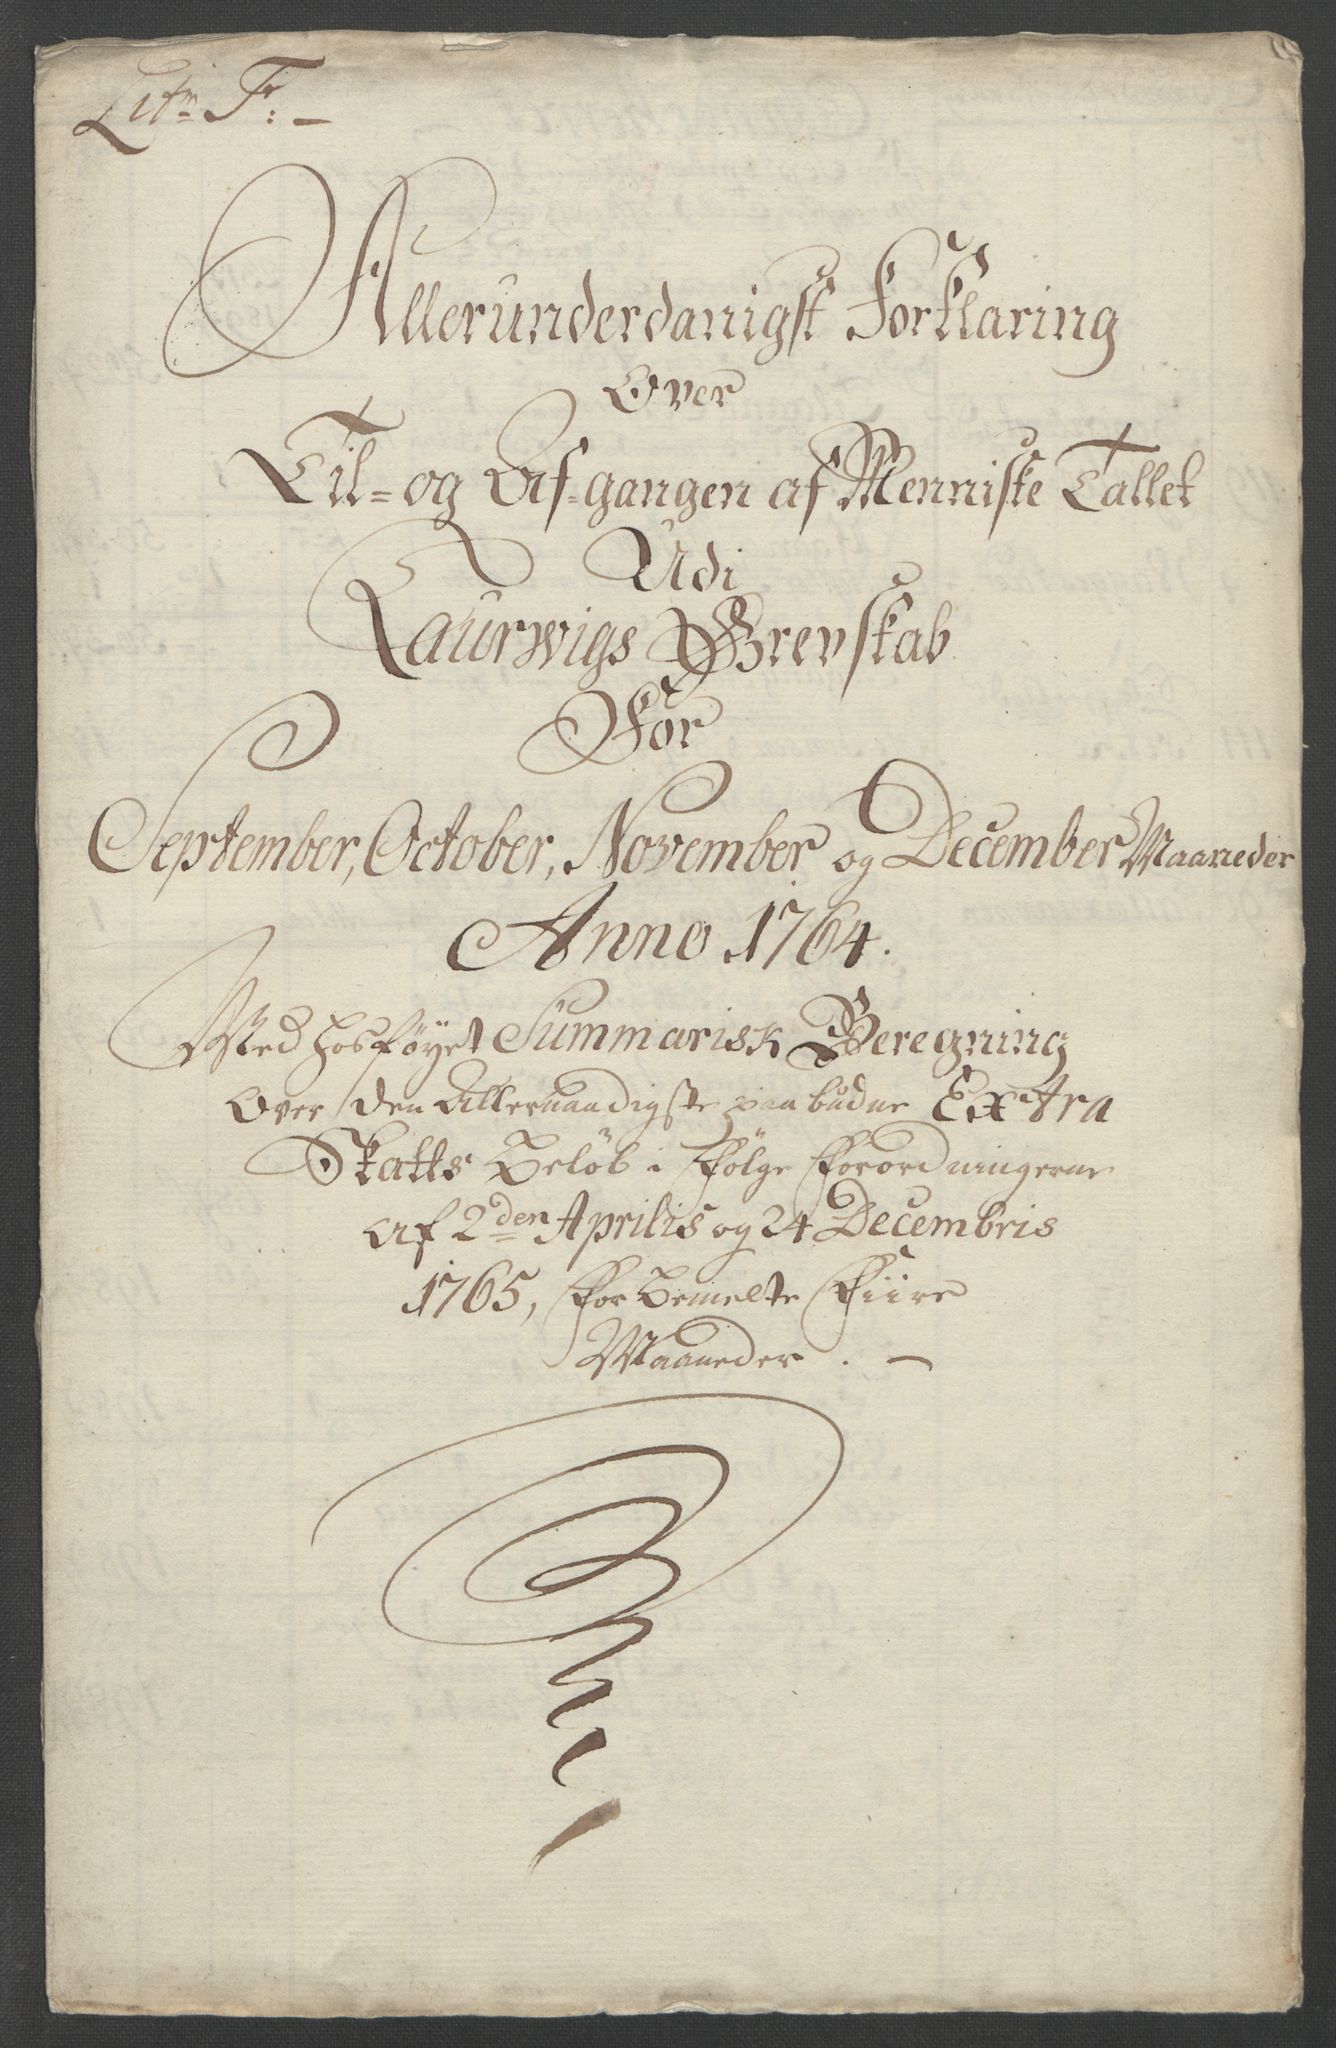 Litr: F: –
Allerunderdanigst Forklaring
Over
Til= og Af=gangen af Menniske Tallet
Udi
Laurwigs Grevskab
For
September, October, November og December Maaneder
Anno 1764.
Med hosføyet Summarisk Beregning
Over den Allernaadigste paabudne Extra
Skatts Beløb i Følge Forordningerne
af 2den Aprilis og 24 Decembris
1765, for bemelte Fiire
Maaneder . –